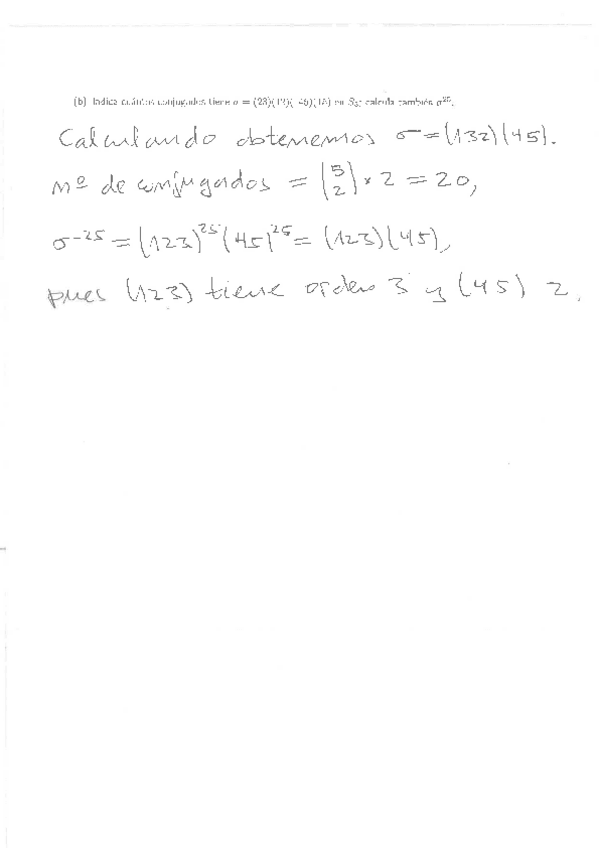 (b) Indica cuántos conjugados tiene σ = (23)(12)( 45)(15) en S₅; calcula también
Calculando obtenemos σ=(132)(45).
nº de conjugados = (5 2) × 2 = 20,
σ⁻²⁵ = (123)²⁵(45)²⁵ = (123)(45),
pues (123) tiene orden 3 y (45) 2.